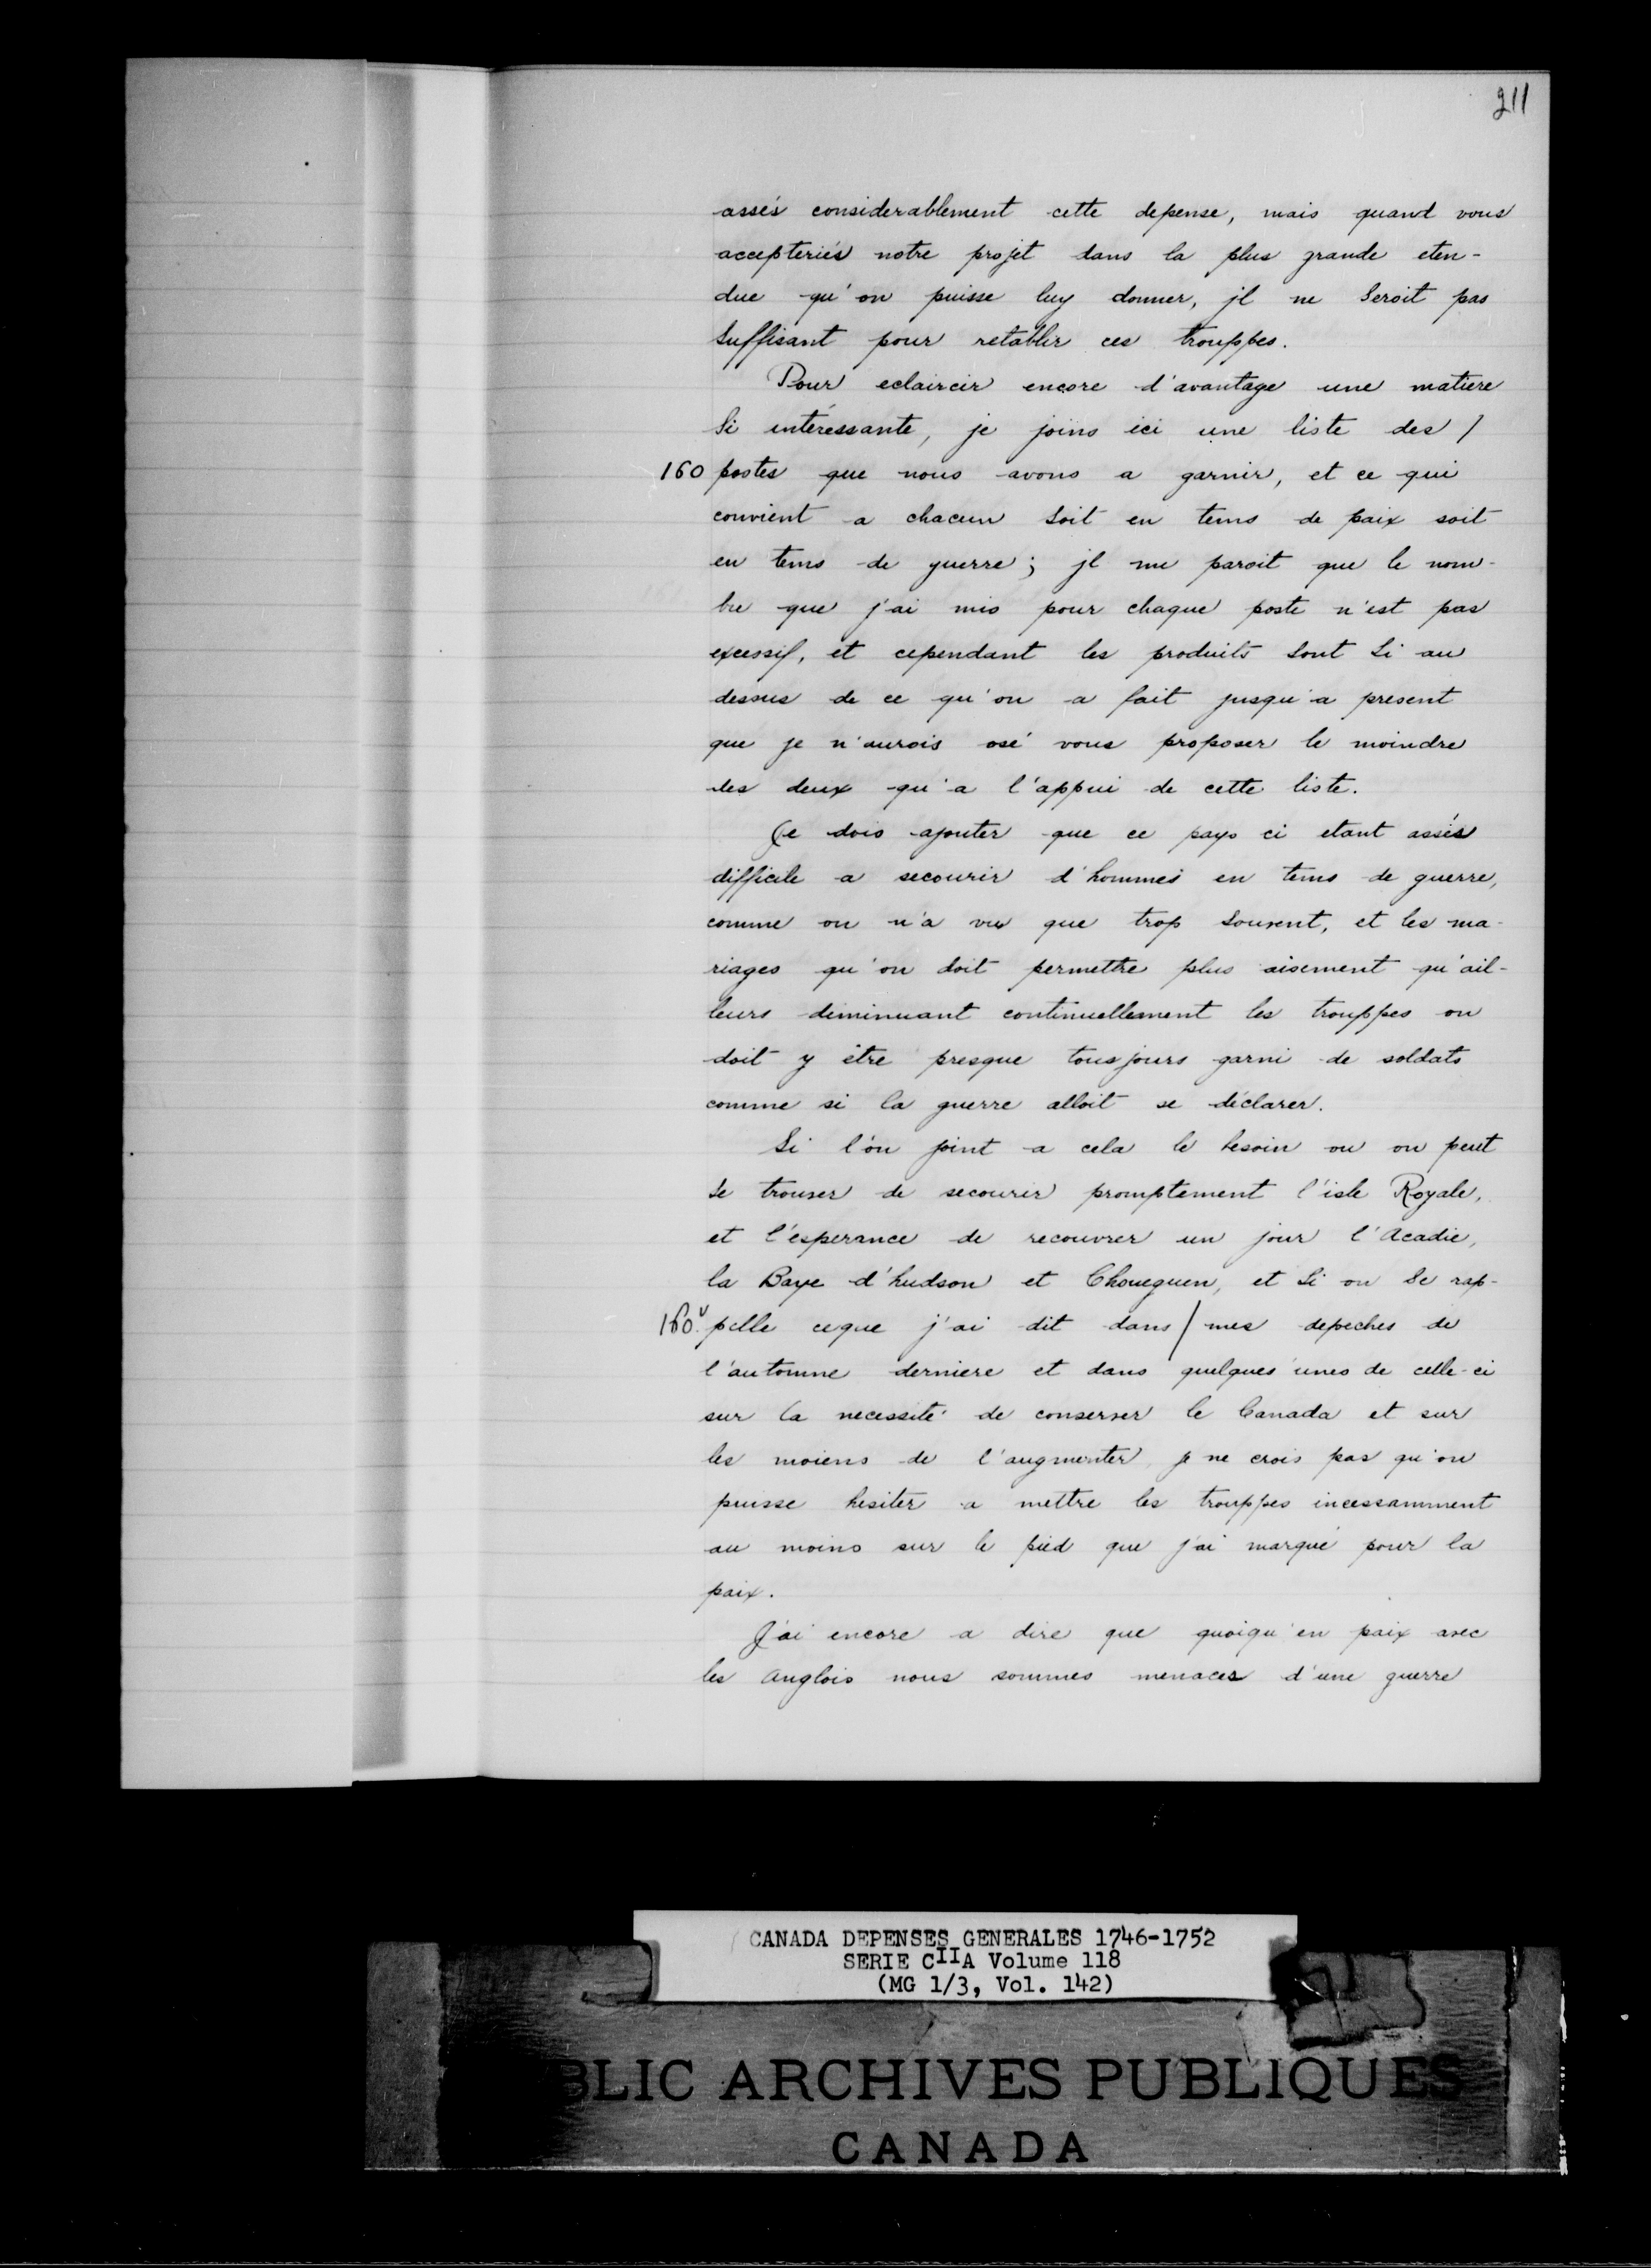 211
assés considerablement cette depense, mais quand vous
accepteriés notre projet dans la plus grande eten-
due qu'on puisse luy donner, jl ne seroit pas
suffisant pour retablir ces trouppes.
Pour eclaircir encore d'avantage une matiere
si intéressante, je joins ici une liste des /
160 postes que nous avons a garnir, et ce qui
convient a chacun soit en tems de paix soit
en tems de guerre; jl me paroit que le nom-
bre que j'ai mis pour chaque poste n'est pas
excessif, et cependant les produits sont si au
dessus de ce qu'on a fait jusqu'a present
que je n'aurois osé vous proposer le moindre
des deux qu'a l'appui de cette liste.
Je dois ajouter que ce pays ci etant assés
difficile a secourir d'hommes en tems de guerre,
comme on n'a vu que trop souvent, et les ma-
riages qu'on doit permettre plus aisement qu'ail-
leurs diminuant continuellement les trouppes on
doit y être presque tousjours garni de soldats
comme si la guerre alloit se déclarer.
Si l'on joint a cela le besoin ou on peut
se trouver de secourir promptement l'isle Royale,
et l'esperance de recouvrer un jour l'Acadie,
la Baye d'hudson et Choueguen, et si on se rap-
160v. pelle ceque j'ai dit dans / mes depeches de
l'automne derniere et dans quelques unes de celle-ci
sur la necessité de conserver le Canada et sur
les moiens de l'augmenter je ne crois pas qu'on
puisse hesiter a mettre les trouppes incessamment
au moins sur le pied que j'ai marqué pour la
paix.
J'ai encore a dire que quoiqu'en paix avec
les anglois nous sommes menacés d'une guerre
CANADA DEPENSES GENERALES 1746-1752
SERIE CIIA Volume 118
(MG 1/3, Vol. 142)
BLIC ARCHIVES PUBLIQUES
CANADA